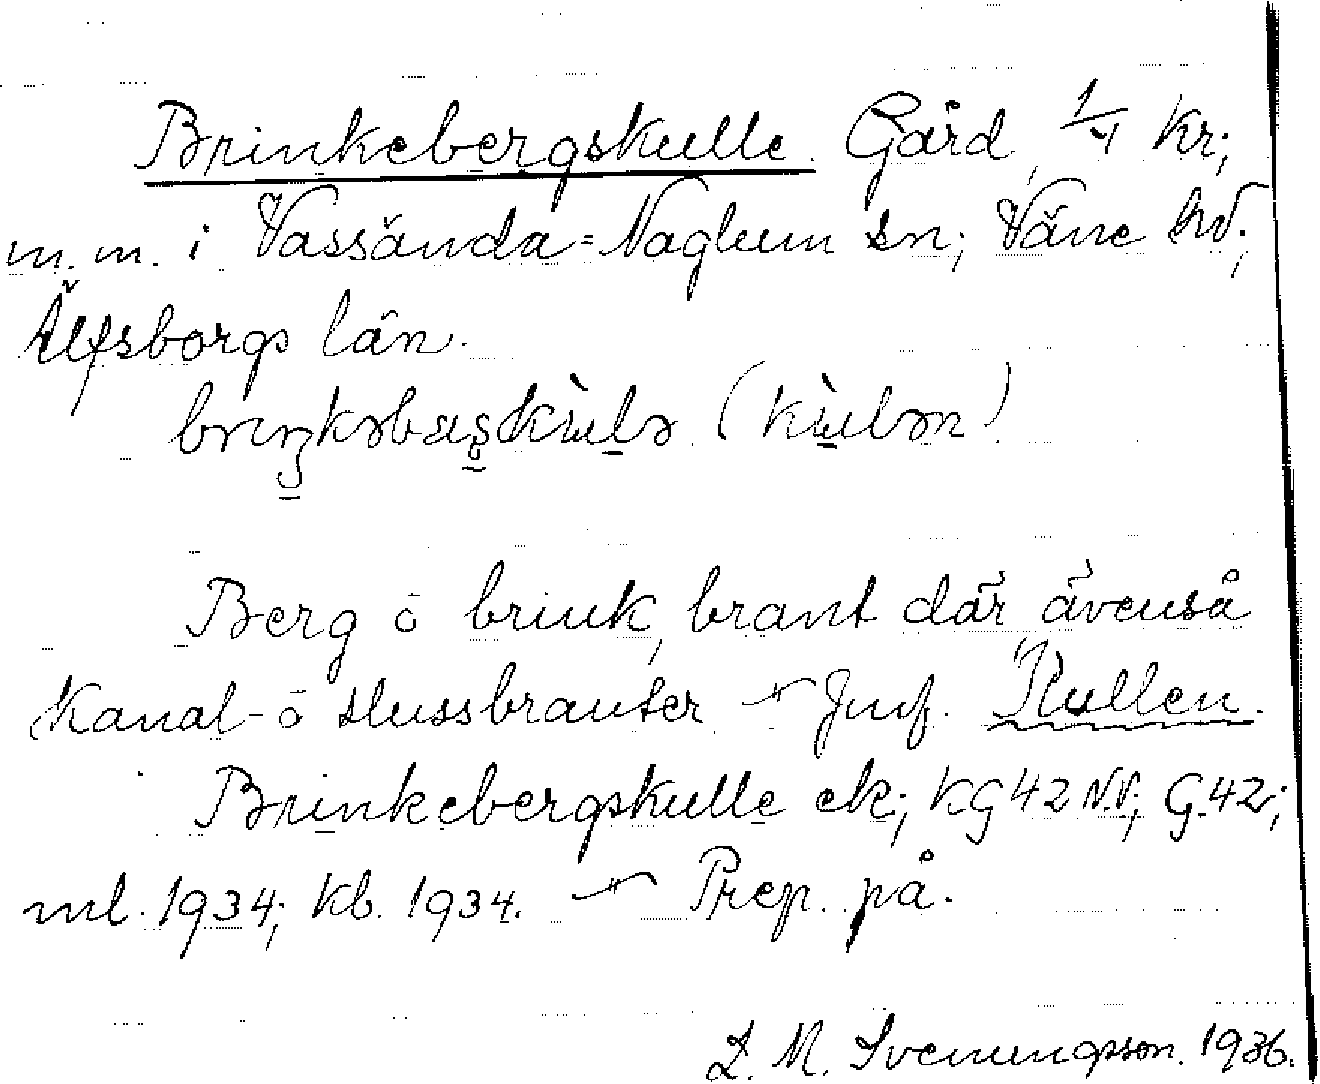 Brinkebergskulle. Gård, 1/4 kr;
m. m. i Vassända=Naglum sn; Väne hd;
Älfsborgs län.
Berg o brink, brant där ävenså
kanal- o slussbranter Jmf. Kullen.
Brinkebergskulle ek; KG 42 NV; G. 42;
ml. 1934; kb. 1934. Prep. på.
L. M. Svenungsson. 1936.